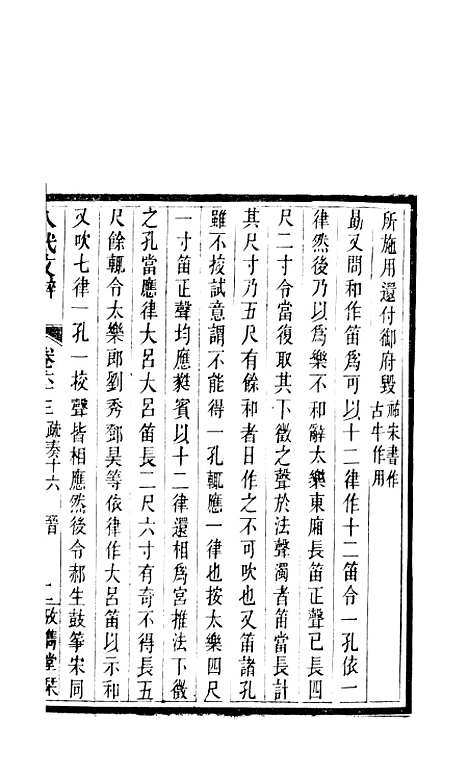 所施用還付御府毀 祐宋書作
古牛作用
勗又問和作笛爲可以十二律作十二笛令一孔依一
律然後乃以爲樂不和辭太樂東廂長笛正聲已長四
尺二寸令當復取其下徵之聲於法聲濁者笛當長計
其尺寸乃五尺有餘和者日作之不可吹也又笛諸孔
雖不挍試意謂不能得一孔輒應一律也按太樂四尺
一寸笛正聲均應蕤賓以十二律還相爲宮推法下徵
之孔當應律大呂大呂笛長二尺六寸有奇不得長五
尺餘輒令太樂郎劉秀鄧昊等依律作大呂笛以示和
又吹七律一孔一挍聲皆相應然後令郝生鼓箏宋同
八代文粹 卷 三 疏奏十六 晉 攷雋堂栞